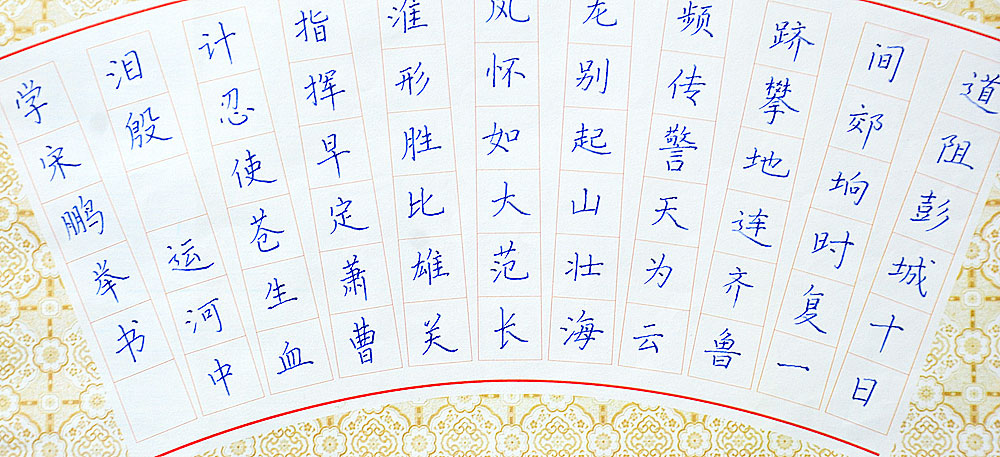 道阻彭城十日
间郊坰时复一
跻攀地连齐鲁
频传警天为云
龙别起山壮海
风怀如大范长
淮形胜比雄关
指挥早定萧曹
计忍使苍生血
泪殷 运河中
学宋鹏举书